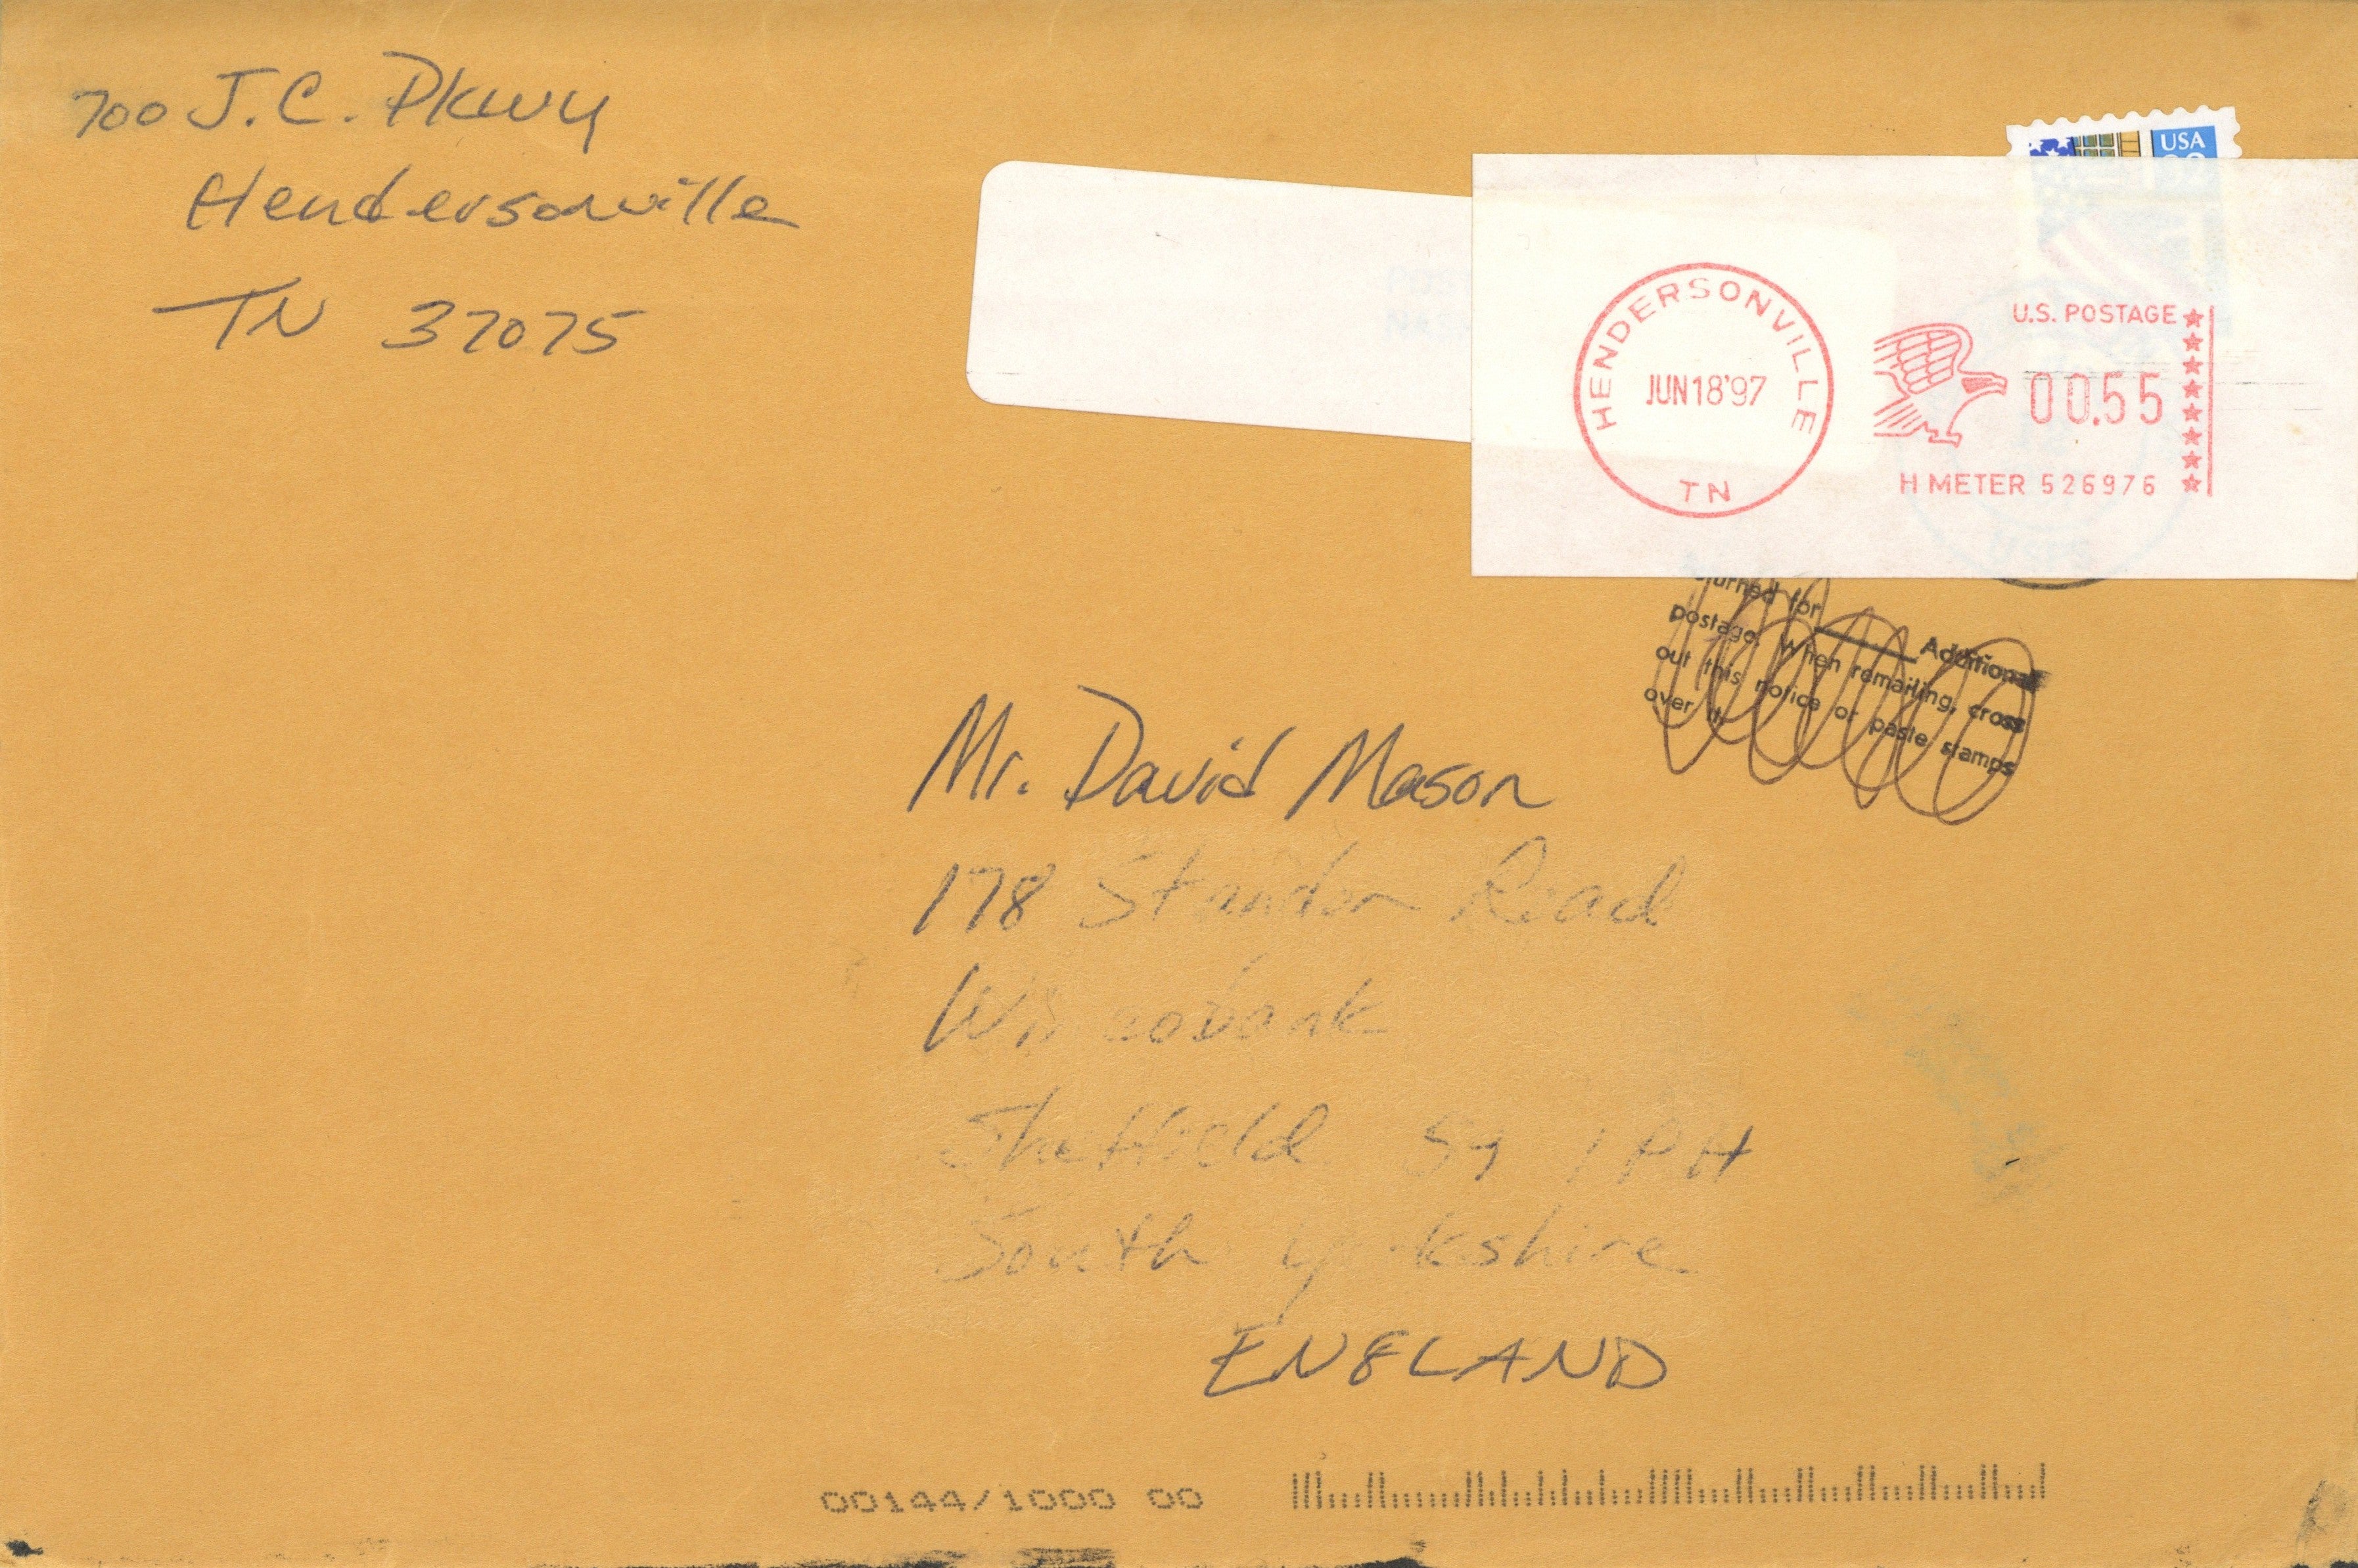 700 J.C. Pkwy
Hendersonville
TN 37075
USA
HENDERSONVILLE
JUN 18 '97
TN
U.S. POSTAGE
00.55
H METER 526976
for
Additional
postage. When remailing, cross
out this notice or paste stamps
over it.
Mr. David Mason
178 Standon Road
Wincobank
Sheffield S9 1PH
South Yorkshire
ENGLAND
00144/1000 00